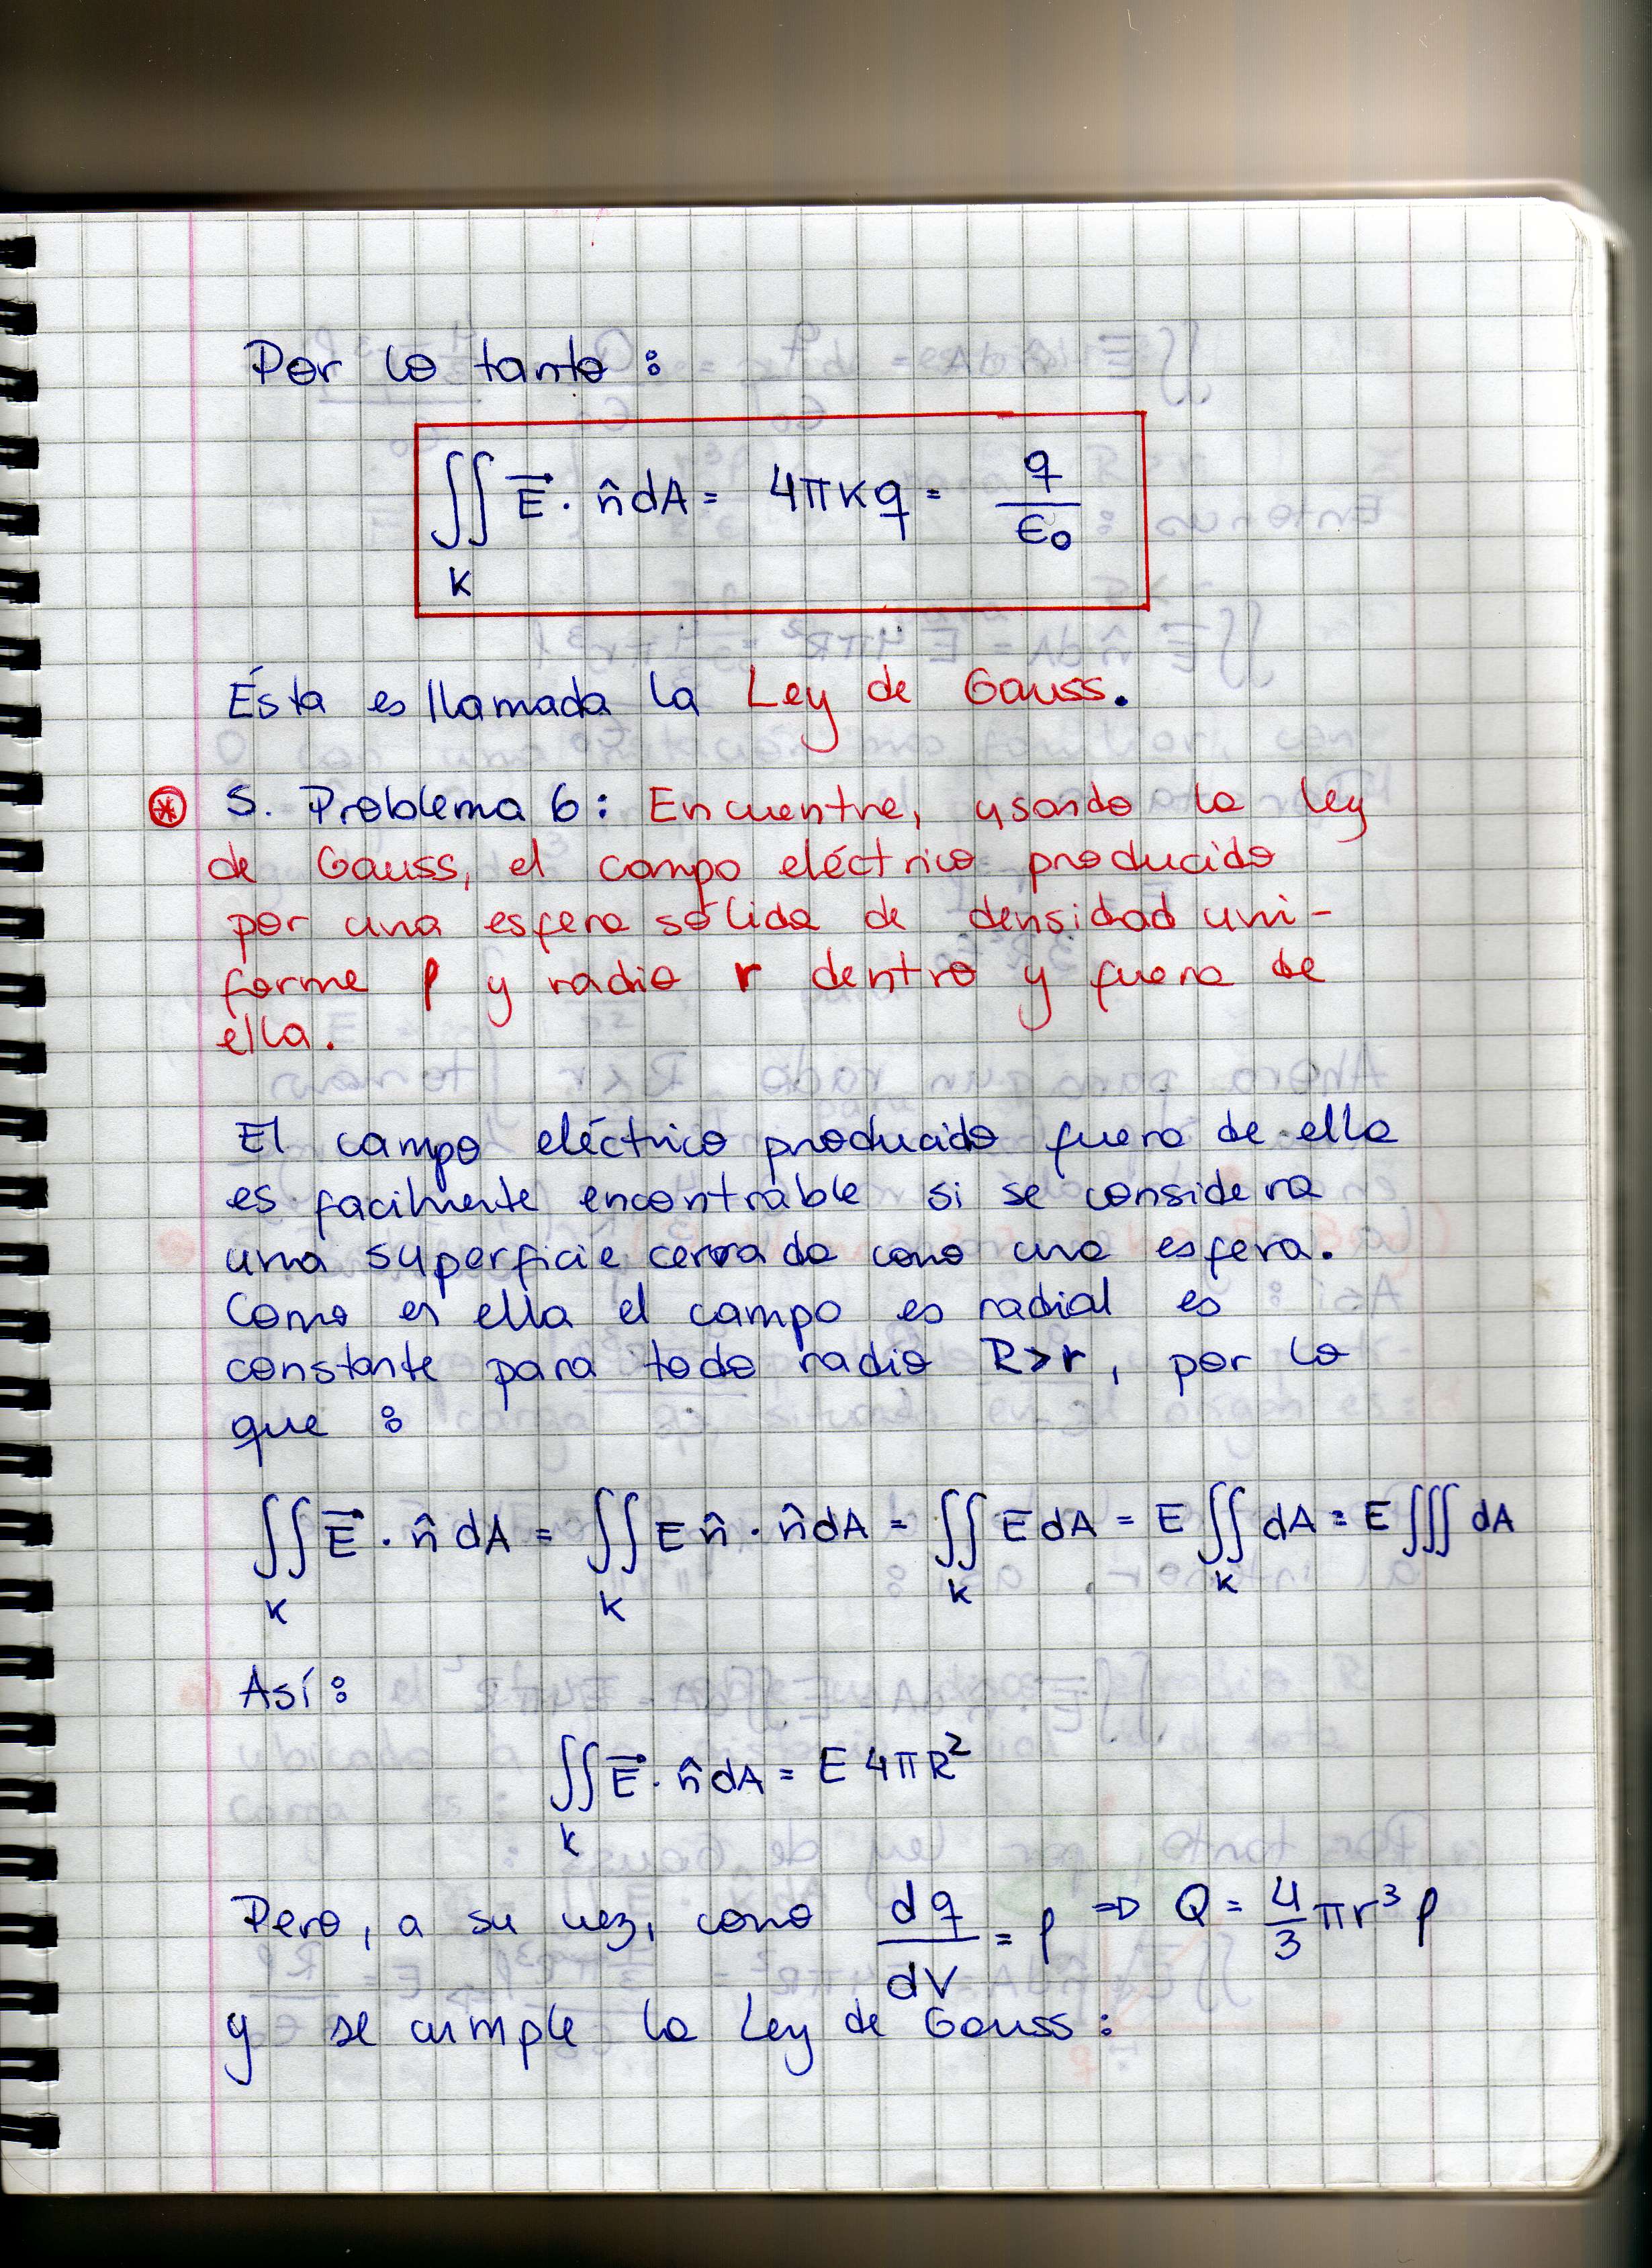 Por lo tanto:
∬ E⃗ · n̂ dA = 4πKq = q/ε₀
K
Ésta es llamada la Ley de Gauss.
* 5. Problema 6: Encuentre, usando la ley
de Gauss, el campo eléctrico producido
por una esfera sólida de densidad uni-
forme ρ y radio r dentro y fuera de
ella.
El campo eléctrico producido fuera de ella
es facilmente encontrable si se considera
una superficie cerrada como una esfera.
Como es ella el campo es radial es
constante para todo radio R>r, por lo
que:
∬ E⃗ · n̂ dA = ∬ E n̂ · n̂ dA = ∬ E dA = E ∬ dA = E ∭ dA
K K K K
Así:
∬ E⃗ · n̂ dA = E 4πR²
K
Pero, a su vez, como dq/dV = ρ ⇒ Q = 4/3 πr³ ρ
y se cumple la Ley de Gauss: